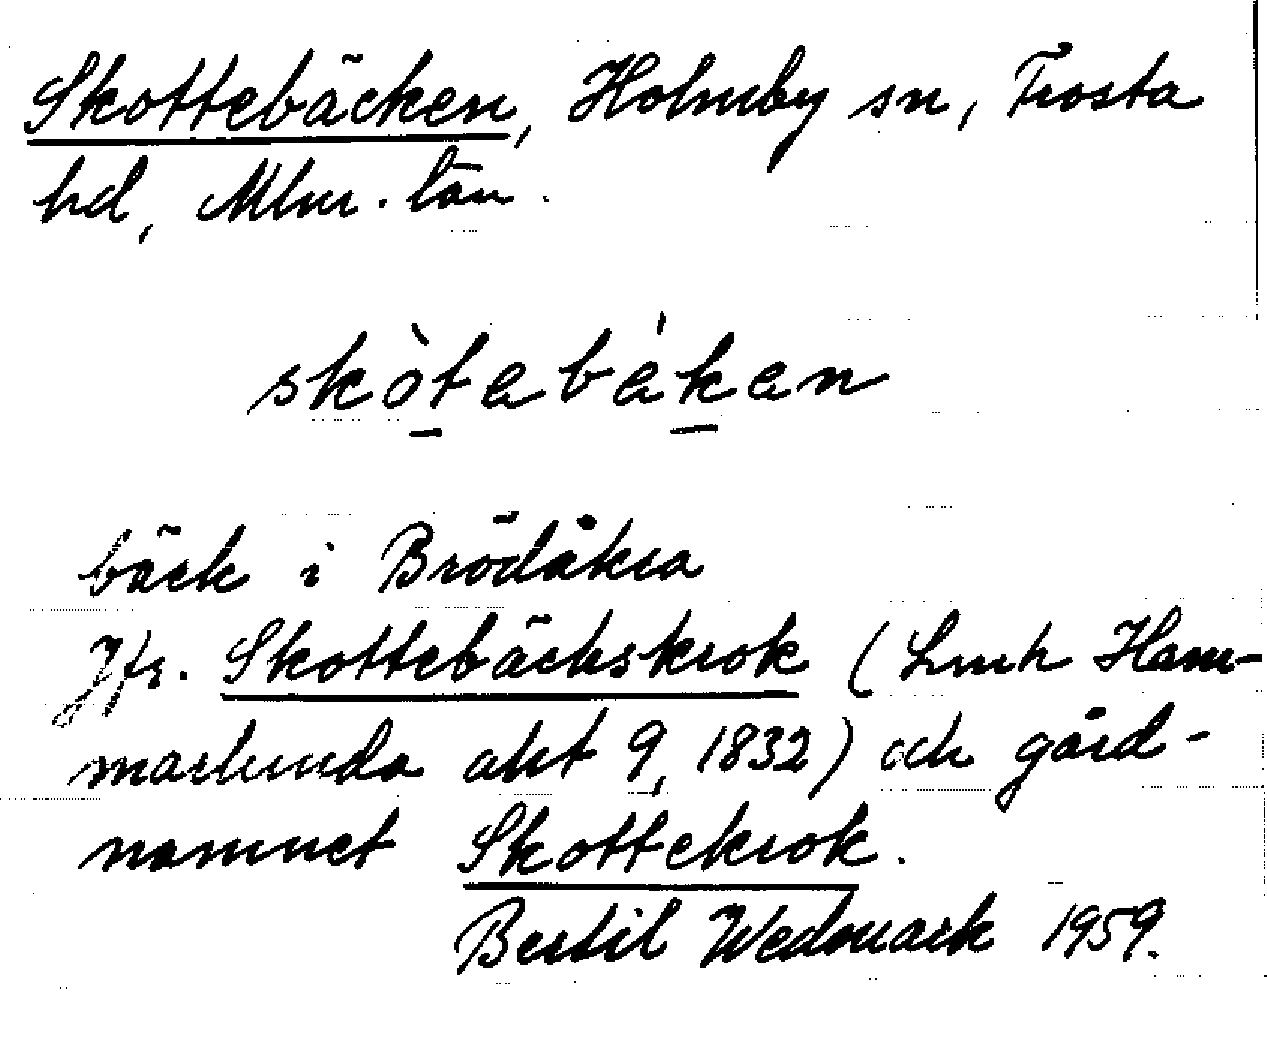 Skottebäcken, Holmby sn, Frosta
hd, Mlm. län.
skòtabákan
bäck i Brödåkra
Jfr. Skottebäckskrok (Lmh Ham-
marlunda akt 9, 1832) och gård-
namnet Skottekrok.
Bertil Wedmark 1959.